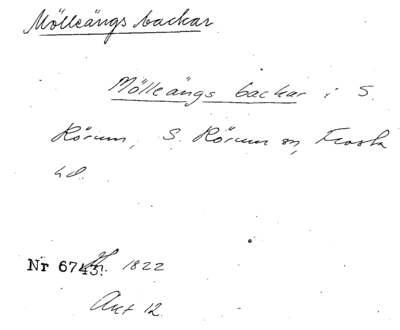 Mölleängs backar
Mölleängs backar i S.
Rörum, S. Rörum sn, Frosta
hd.
Nr 6743: 1822
Akt 12.